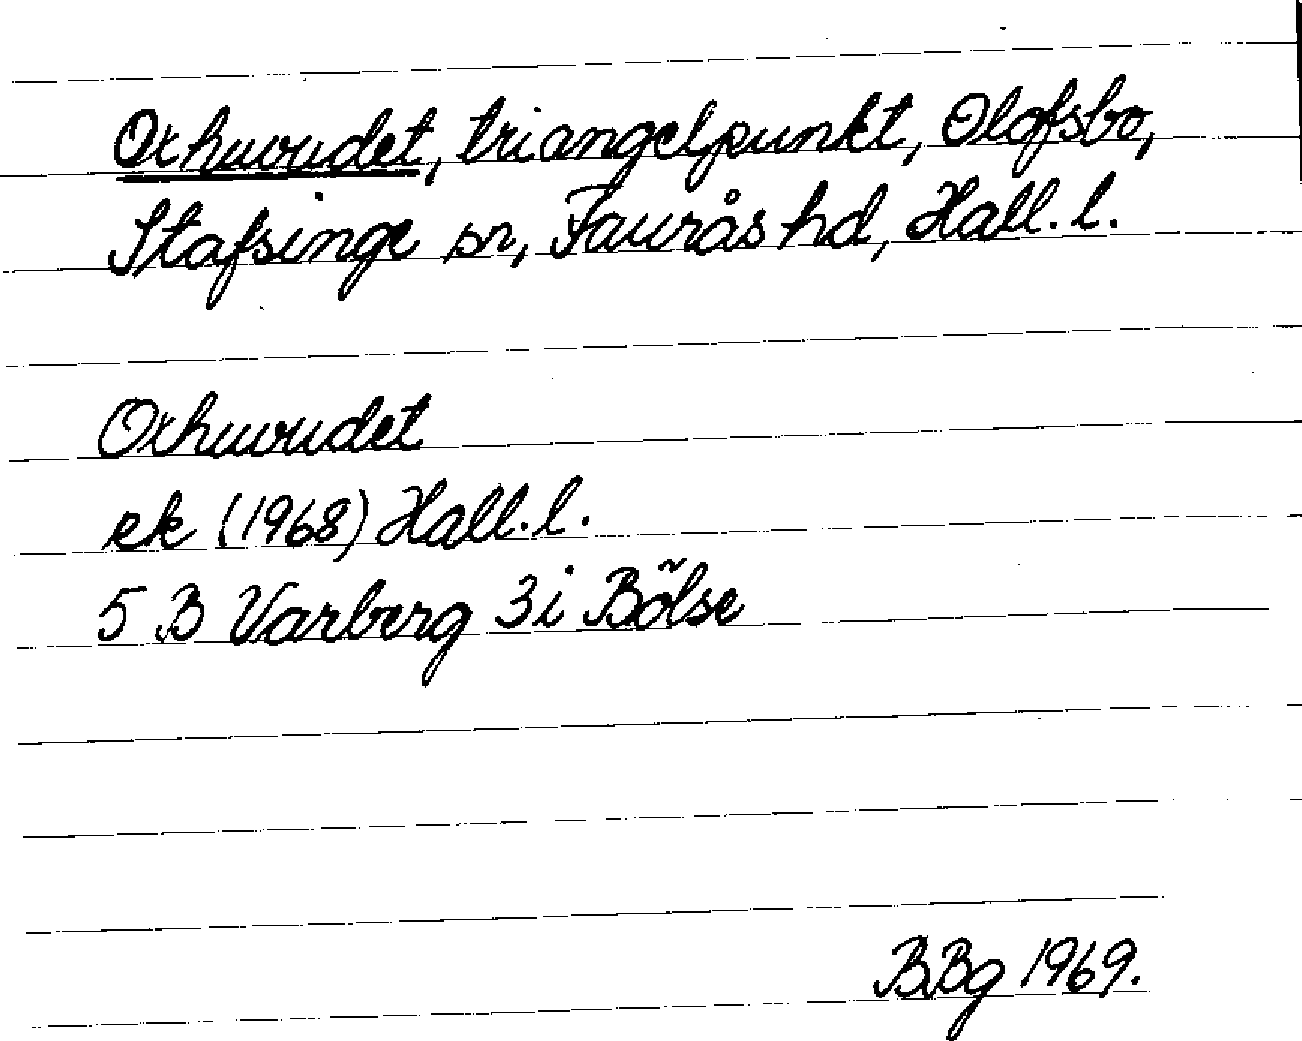 Oxhuvudet, triangelpunkt, Olofsbo,
Stafsinge sn, Faurås hd, Hall. l.
Oxhuvudet
ek (1968) Hall. l.
5 B Varberg 3i Bölse
BBg 1969.